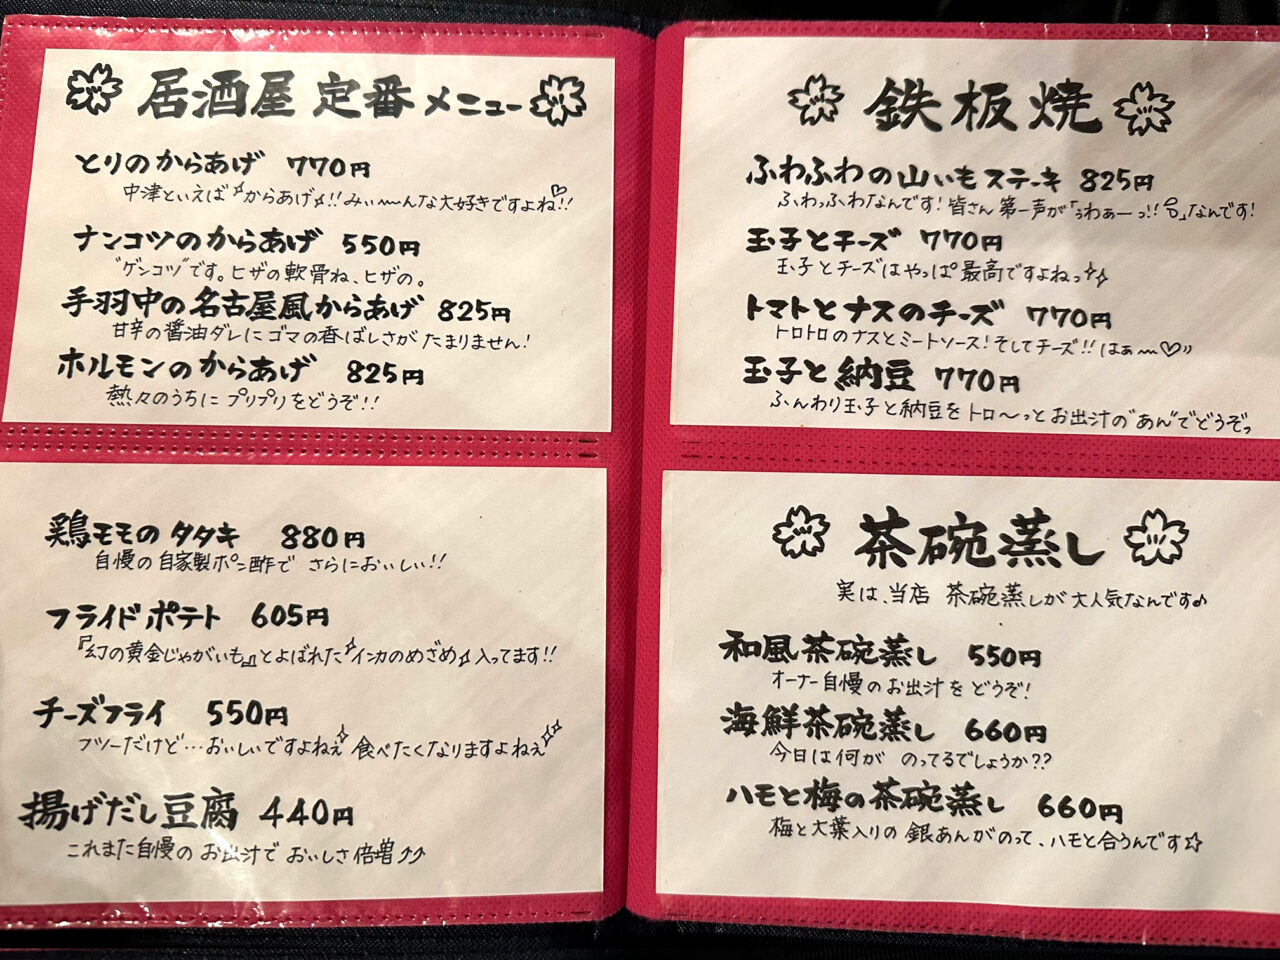 居酒屋 定番メニュー
とりのからあげ 770円
中津といえば"からあげ"!!みぃ〜んな大好きですよね♡!!
ナンコツのからあげ 550円
"ゲンコツ"です。ヒザの軟骨ね、ヒザの。
手羽中の名古屋風からあげ 825円
甘辛の醤油ダレにゴマの香ばしさがたまりません!
ホルモンのからあげ 825円
熱々のうちにプリプリをどうぞ!!
鶏モモのタタキ 880円
自慢の自家製ポン酢で さらにおいしい!!
フライドポテト 605円
『幻の黄金じゃがいも』とよばれた"インカのめざめ"入ってます!!
チーズフライ 550円
フツーだけど…おいしいですよねぇ 食べたくなりますよねぇ
揚げだし豆腐 440円
これまた自慢のお出汁で おいしさ倍増⤴⤴
鉄板焼
ふわふわの山いもステーキ 825円
ふわっふわなんです!皆さん第一声が「うわぁーっ!!」なんです!
玉子とチーズ 770円
玉子とチーズはやっぱ最高ですよねっ
トマトとナスのチーズ 770円
トロトロのナスとミートソース!そしてチーズ!!はぁ〜♡
玉子と納豆 770円
ふんわり玉子と納豆をトロ〜っとお出汁の"あん"でどうぞっ
茶碗蒸し
実は、当店 茶碗蒸しが大人気なんです♪
和風茶碗蒸し 550円
オーナー自慢のお出汁をどうぞ!
海鮮茶碗蒸し 660円
今日は何が のってるでしょうか??
ハモと梅の茶碗蒸し 660円
梅と大葉入りの銀あんがのって、ハモと合うんです☆